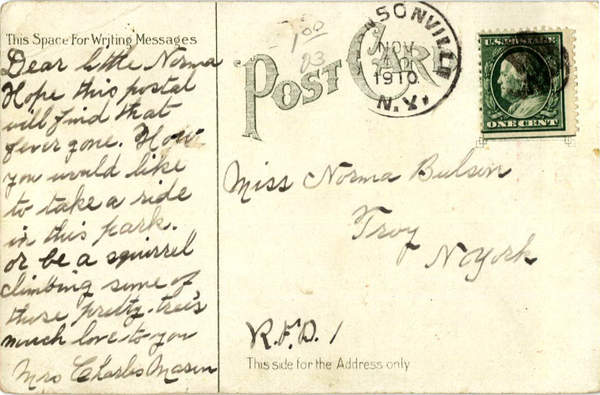 This Space For Writing Messages
Dear little Norma
Hope this postal
will find that
fever gone. How
you would like
to take a ride
in this park.
or be a squirrel
climbing some of
those pretty trees
much love to you
Mrs Charles Mason
1.00
03
POST CARD
SONVILLE
NOV
1910
N.Y.
U.S. POSTAGE
ONE CENT
Miss Norma Bulson
Troy
N York
R.F.D. 1
This side for the Address only